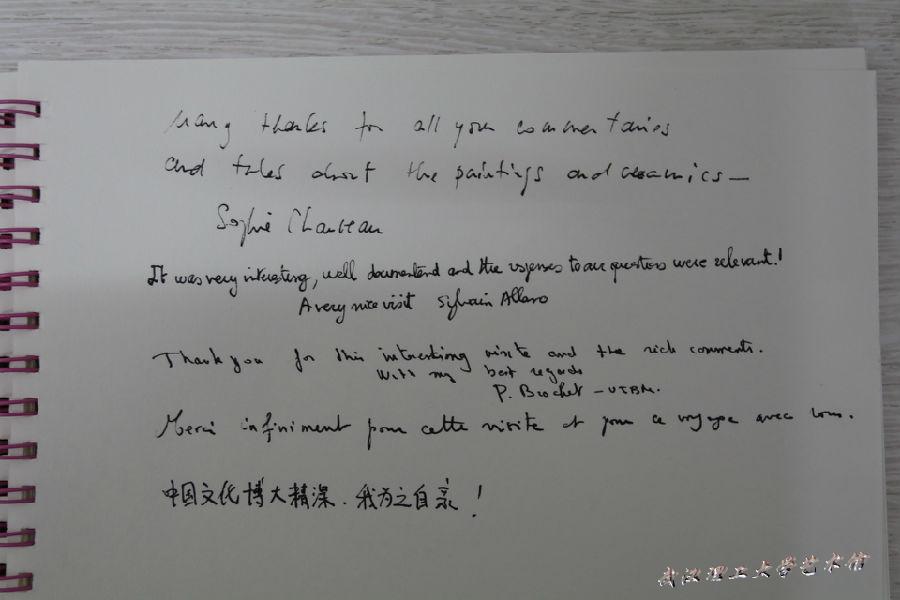 Many thanks for all your commentaries
and talks about the paintings and ceramics —
Sophie Chauveau
It was very interesting, well documented and the responses to our questions were relevant!
A very nice visit Sylvain Allano
Thank you for this interesting visite and the rich comments.
With my best regards
P. Brochet – UTBM.
Merci infiniment pour cette visite et pour ce voyage avec vous.
中国文化博大精深. 我为之自豪!
武汉理工大学艺术馆